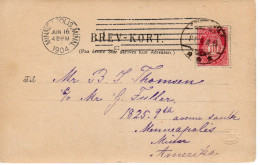 MINNEAPOLIS, MINN.
JUN 16
4 30 PM
1904
BREV-KORT.
(Paa denne Side skrives kun Adressen.)
Til Mr B. J. Thomsen
c/o Mr G. Fuller
1825 9th avenue south
Minneapolis
Minn
Amerika